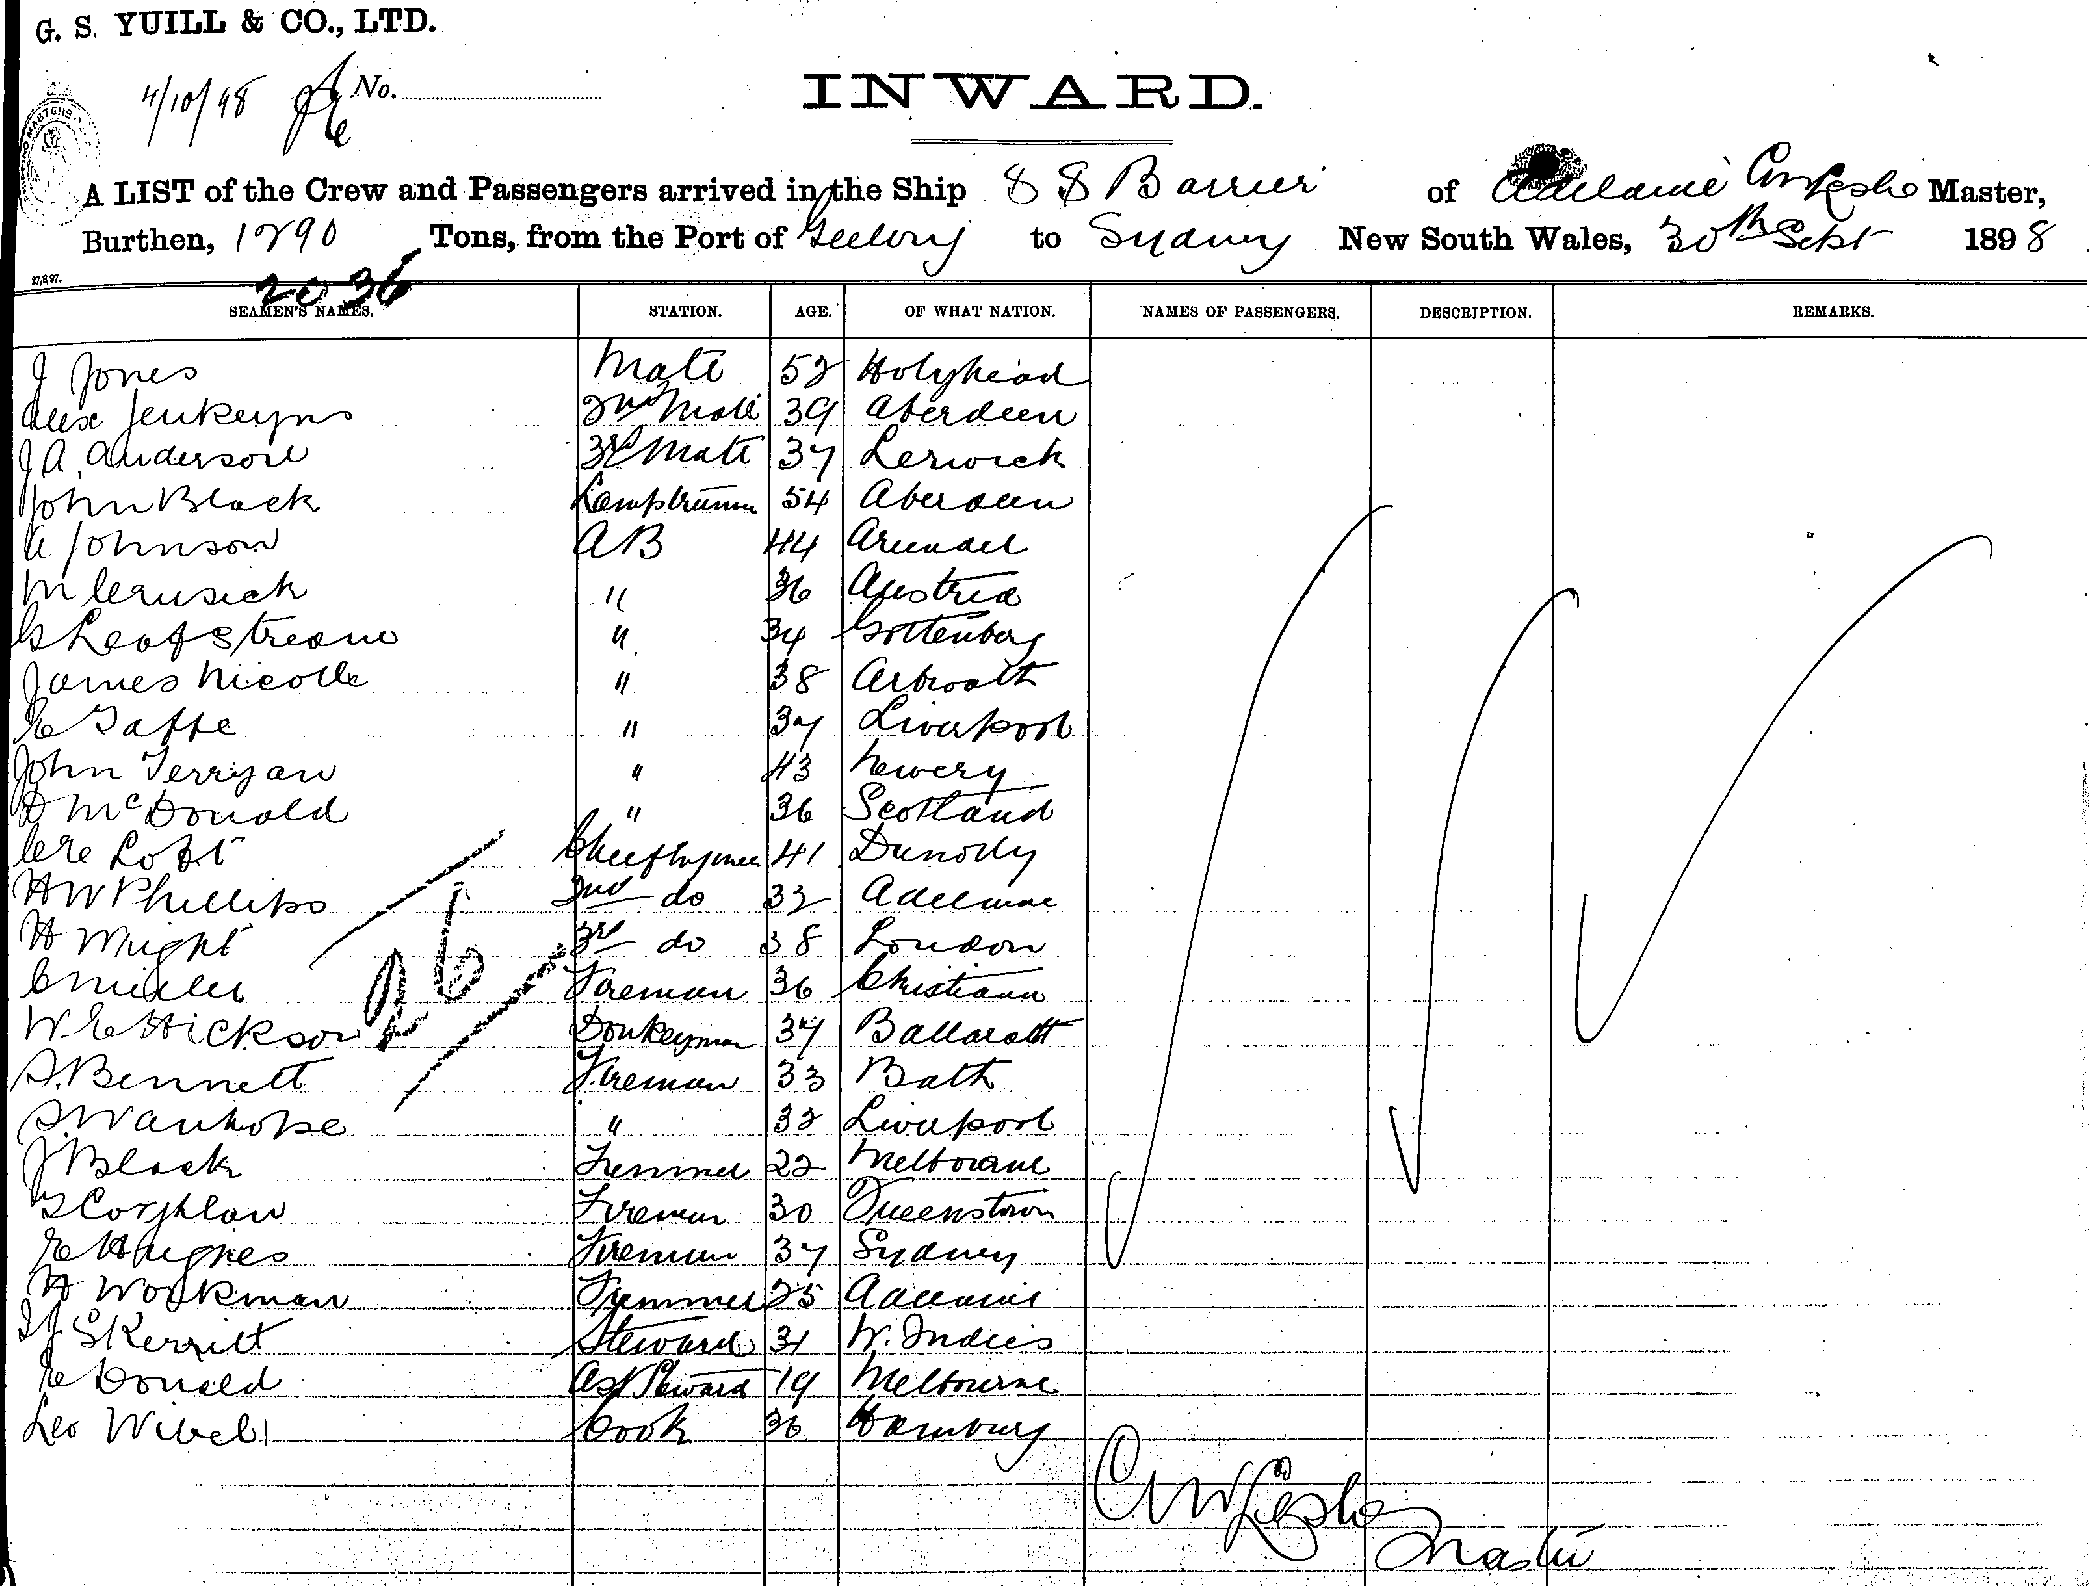 G. S. YUILL & CO., LTD.
4/10/98 No.
INWARD.
A LIST of the Crew and Passengers arrived in the Ship S S Barrier of Adelaide Master,
Burthen, 1290 Tons, from the Port of Geelong to Sydney New South Wales, 30th Sept 1898
2036
SEAMEN'S NAMES. STATION. AGE. OF WHAT NATION. NAMES OF PASSENGERS. DESCRIPTION. REMARKS.
J Jones Mate 52 Holyhead
Alex Jenkeyns 2nd Mate 39 Aberdeen
J A Anderson 3rd Mate 37 Lerwick
John Black Lamptrimmer 54 Aberdeen
A Johnson AB 44 Arundel
M " 36 Austria
" 34 Gottenberg
James Nicolle " 38 Arbroath
E Taffe " 37 Liverpool
John Terryan " 43 Newery
D McDonald " 36 Scotland
Loft 41
H W Phillips 2nd do 32 Adelaide
H Wright 3rd do 38 London
C Miller Fireman 36
W. E Hickson Donkeyman 37 Ballaratt
A. Bennett Fireman 33 Bath
" 32 Liverpool
J Black Trimmer 22 Melbourne
Fireman 30 Queenstown
E Hughes Fireman 37 Sydney
H Workman Trimmer 25 Adelaide
Skerritt Steward 31 W. Indies
E Donald Ast Steward 19 Melbourne
Leo Wibel Cook 36 Hamburg
26
Master